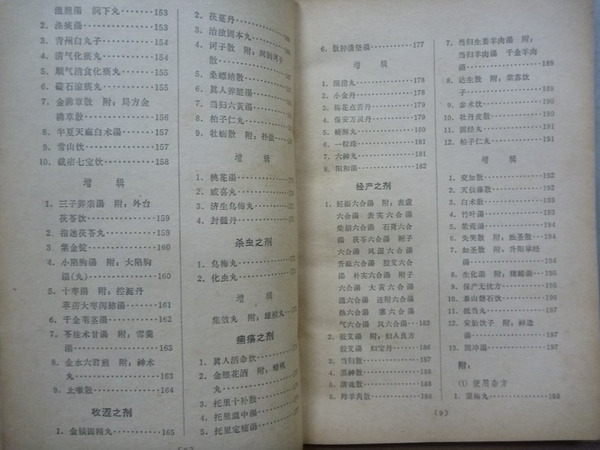 2. 涤痰汤……153
3. 青州白丸子……153
4. 清气化痰丸……154
5. 顺气消食化痰丸……155
6. 礞石滚痰丸……155
7. 金沸草散 附：局方金
沸草散……156
8. 半夏天麻白术汤……157
9. 常山饮……157
10. 截疟七宝饮……158
增 辑
1. 三子养亲汤 附：外台
茯苓饮……159
2. 指迷茯苓丸……159
3. 紫金锭……160
4. 小陷胸汤 附：大陷胸
汤(丸)……160
5. 十枣汤 附：控涎丹
葶苈大枣泻肺汤……161
6. 千金苇茎汤……162
7. 苓桂术甘汤 附：雪羹
汤……163
8. 金水六君煎 附：神术
丸……163
9. 止嗽散……164
收涩之剂
1. 金锁固精丸……165
2. 茯菟丹
3. 治浊固本丸
4. 诃子散
散
5. 桑螵蛸散
6. 真人养脏汤
7. 当归六黄汤
8. 柏子仁丸
9. 牡蛎散
增 辑
1. 桃花汤
2. 威喜丸
3. 济生乌梅丸
4. 封髓丹
杀虫之剂
1. 乌梅丸
2. 化虫丸
增 辑
集效丸 附：雄槟丸
痈疡之剂
1. 真人活命饮
2. 金银花酒 附：蜡矾
丸
3. 托里十补散
4. 托里温中汤
5. 托里定痛汤
6. 散肿溃坚汤……177
增 辑
2. 小金丹……178
3. 梅花点舌丹……179
4. 保安万灵丹……179
5. 蟾酥丸……180
6. 一粒珠……181
7. 六神丸……181
8. 阳和汤……182
经产之剂
1. 妊娠六合汤 附：表虚
六合汤 表实六合汤
柴胡六合汤 石膏六合
汤 茯苓六合汤 附子
六合汤 风湿六合汤
升麻六合汤 胶艾六合
汤 朴实六合汤 附子
六合汤 大黄六合汤
温六合汤 连附六合汤
热六合汤 寒六合汤
气六合汤 风六合汤……183
2. 胶艾汤 附：妇人良方
胶艾汤 妇宝丹……186
3. 当归散……187
4. 黑神散……187
5. 清魂散……188
6. 羚羊角散……188
7. 当归生姜羊肉汤 附：
当归羊肉汤 千金羊肉
汤……189
8. 达生散 附：紫苏饮
子……189
9. 参术饮……190
10. 牡丹皮散……190
11. 固经丸……191
12. 柏子仁丸……191
增 辑
1. 交加散……192
2. 天仙藤散……192
3. 白术散……193
4. 竹叶汤……193
5. 紫菀汤……193
6. 失笑散 附：如圣散……193
7. 如圣散 附：升阳举经
汤……194
8. 生化汤 附：……195
9. 保产无忧方……195
10. 泰山磐石饮……196
12. 发胎饮子 附：神造
汤……197
13. ……冲汤……197
附：
(1) 便用杂方
1. 望梅丸……198
(9)